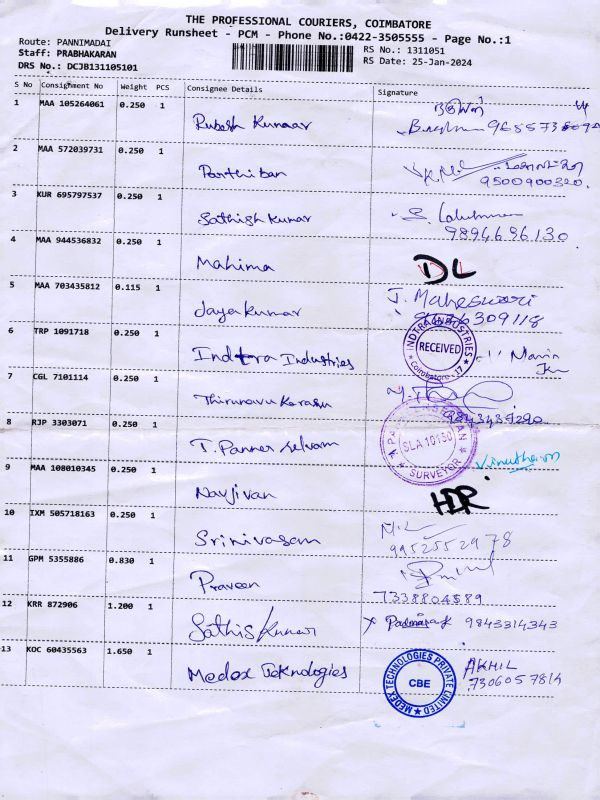 THE PROFESSIONAL COURIERS, COIMBATORE
Delivery Runsheet - PCM - Phone No.:0422-3505555 - Page No.:1
Route: PANNIMADAI
RS No.: 1311051
Staff: PRABHAKARAN
RS Date: 25-Jan-2024
DRS No.: DCJB131105101
S No Consignment No Weight PCS Consignee Details Signature
1 MAA 105264061 0.250 1
Rubesh Kumaar
2 MAA 572039731 0.250 1
Parthiban
9500900320.
3 KUR 695797537 0.250 1
Sathish Kumar S. Lakshman
9894696130
4 MAA 944536832 0.250 1
Mahima DL
5 MAA 703435812 0.115 1
Jayakumar J. Maheswari
309118
6 TRP 1091718 0.250 1
Indtra Industries
INDTRA INDUSTRIES
RECEIVED
Coimbatore - 17
7 CGL 7101114 0.250 1
Thirunavukarasu
8 RJP 3303071 0.250 1
T. Panner selvam
SLA 10150
SURVEYOR
9 MAA 108010345 0.250 1
Navjivan HDR
10 IXM 505718163 0.250 1
Srinivasam
9952552978
11 GPM 5355886 0.830 1
Praveen
7338804589
12 KRR 872906 1.200 1
Sathis Kumar 9843314343
13 KOC 60435563 1.650 1
Medox Teknologies
MEDEX TECHNOLOGIES PRIVATE LIMITED
CBE
AKHIL
7306057814